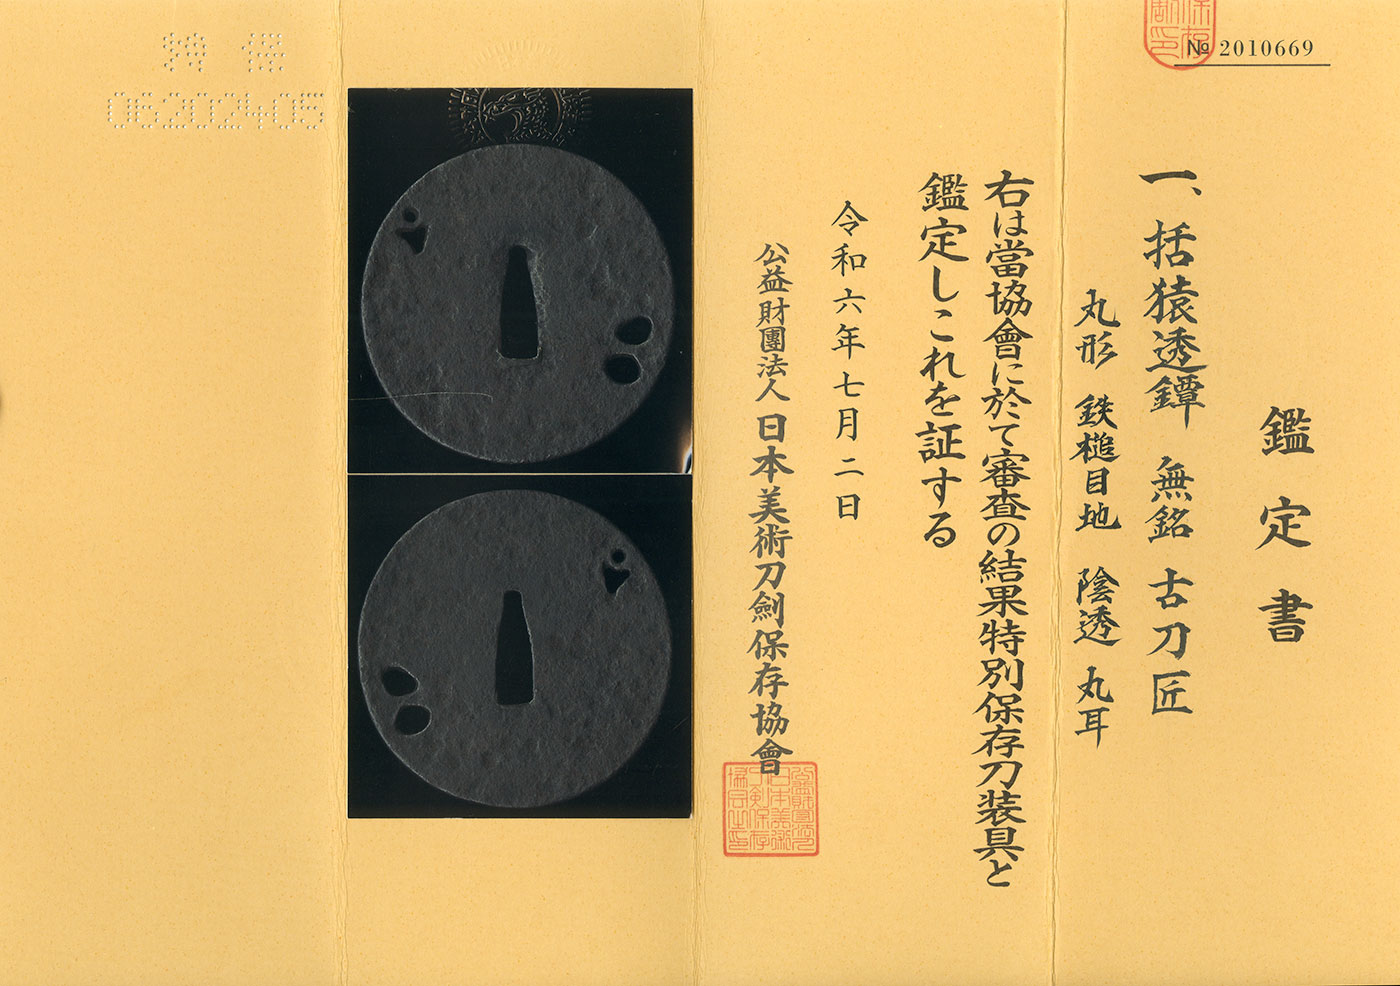 № 2010669
鑑定書
一、括猿透鐔 無銘 古刀匠
丸形 鉄槌目地 陰透 丸耳
右は當協會に於て審査の結果特別保存刀装具と
鑑定しこれを証する
令和六年七月二日
公益財團法人 日本美術刀劍保存協會
06202405